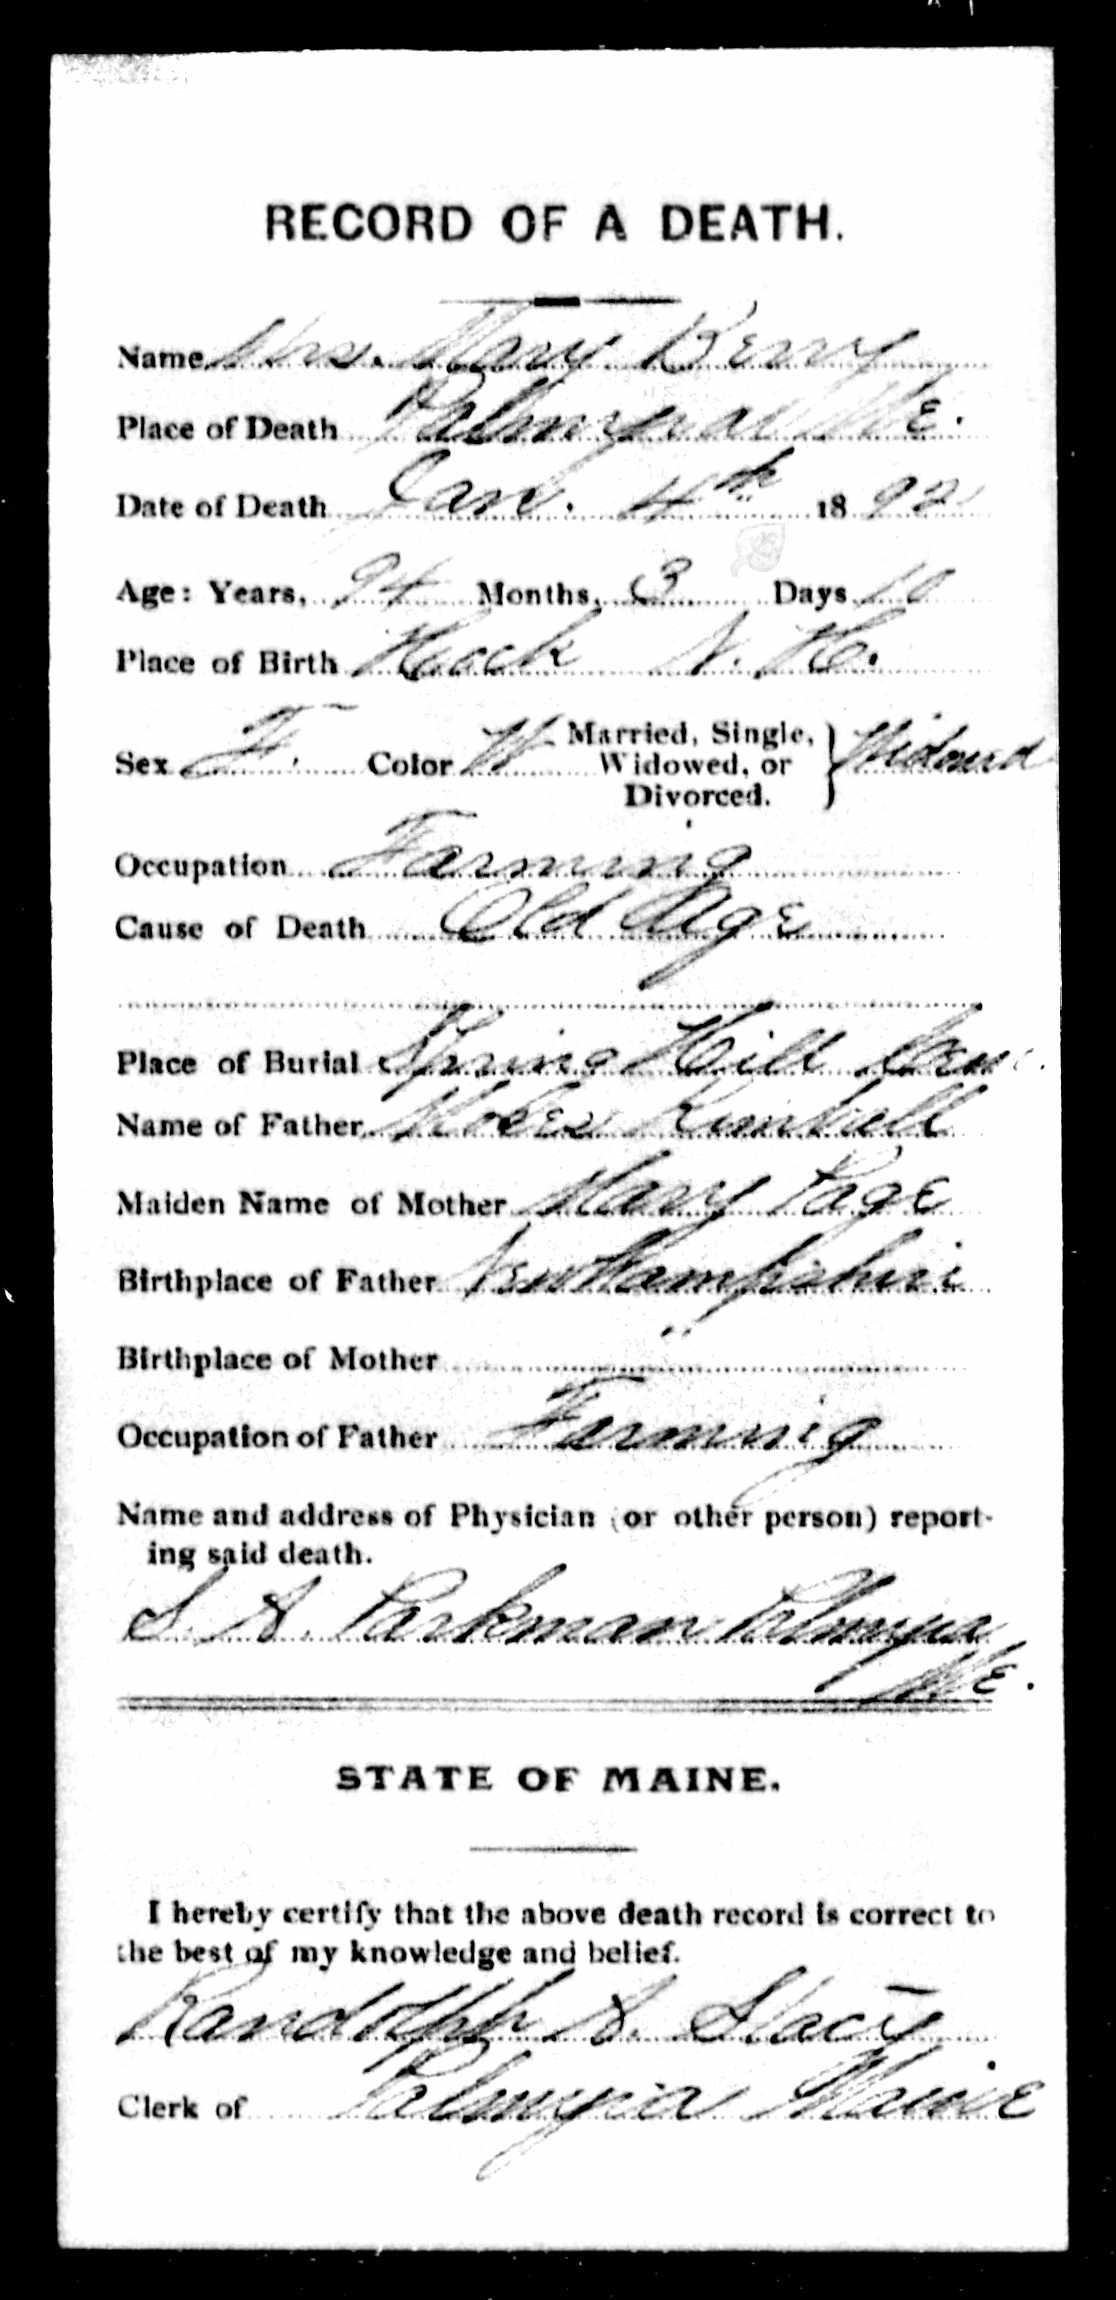 RECORD OF A DEATH.
Name Mrs. Mary Berry
Place of Death Palmyra Me.
Date of Death Jan. 4th 1892
Age: Years, 94 Months, 3 Days 10
Place of Birth N. H.
Sex F. Color W Married, Single, Widowed, or Divorced. } Widowed
Occupation Farming
Cause of Death Old Age
Place of Burial Spring Hill Cem
Name of Father Moses Kimball
Maiden Name of Mother Mary Page
Birthplace of Father New Hampshire
Birthplace of Mother "
Occupation of Father Farming
Name and address of Physician (or other person) report-
ing said death.
S. A. Parkman Palmyra
Me.
STATE OF MAINE.
I hereby certify that the above death record is correct to
the best of my knowledge and belief.
Randolph A. Stacy
Clerk of Palmyra Maine